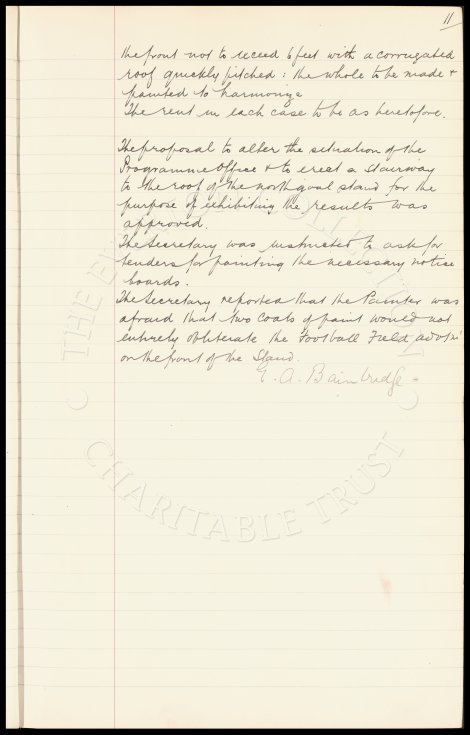 11
the front not to exceed 6 feet with a corrugated
roof quickly pitched: the whole to be made &
painted to harmonize
The rent in each case to be as heretofore.
The proposal to alter the situation of the
Programme Office & to erect a stairway
to the roof of the north goal stand for the
purpose of exhibiting the results was
approved.
The Secretary was instructed to ask for
tenders for painting the necessary notice
boards.
The Secretary reported that the Painter was
afraid that two coats of paint would not
entirely obliterate the Football Field
on the front of the Stand.
E. A. Bainbridge
CHARITABLE TRUST